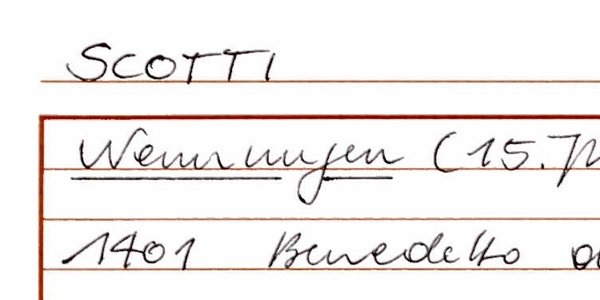 SCOTTI
Nennungen (15.
1401 Benedetto